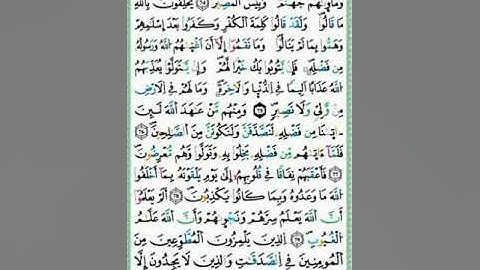 وَمَأْوَىٰهُمْ جَهَنَّمُ وَبِيسَ ٱلْمَصِيرُ يَحْلِفُونَ بِاللَّهِ
مَا قَالُوا۟ وَلَقَدْ قَالُوا۟ كَلِمَةَ ٱلْكُفْرِ وَكَفَرُوا۟ بَعْدَ إِسْلَٰمِهِمْ
وَهَمُّوا۟ بِمَا لَمْ يَنَالُوا۟ وَمَا نَقَمُوا۟ إِلَّا أَنْ أَغْنَىٰهُمُ ٱللَّهُ وَرَسُولُهُ
مِن فَضْلِهِ فَإِن يَتُوبُوا۟ يَكُ خَيْرًا لَّهُمْ وَإِن يَتَوَلَّوْا۟ يُعَذِّبْهُمُ
ٱللَّهُ عَذَابًا أَلِيمًا فِي ٱلدُّنْيَا وَٱلْأَخِرَةِ وَمَا لَهُمْ فِي ٱلْأَرْضِ
مِنْ وَّلِيٍّ وَلَا نَصِيرٍ وَمِنْهُم مَّنْ عَٰهَدَ ٱللَّهَ لَئِنْ
ءَاتَىٰنَا مِن فَضْلِهِ لَنَصَّدَّقَنَّ وَلَنَكُونَنَّ مِنَ ٱلصَّٰلِحِينَ
فَلَمَّا ءَاتَىٰهُم مِّن فَضْلِهِ بَخِلُوا۟ بِهِ وَتَوَلَّوا۟ وَّهُم مُّعْرِضُونَ
فَأَعْقَبَهُمْ نِفَاقًا فِي قُلُوبِهِمْ إِلَىٰ يَوْمِ يَلْقَوْنَهُ بِمَا أَخْلَفُوا۟
ٱللَّهَ مَا وَعَدُوهُ وَبِمَا كَانُوا۟ يَكْذِبُونَ أَلَمْ يَعْلَمُوا۟
أَنَّ ٱللَّهَ يَعْلَمُ سِرَّهُمْ وَنَجْوَىٰهُمْ وَأَنَّ ٱللَّهَ عَلَّٰمُ
ٱلْغُيُوبِ ٱلَّذِينَ يَلْمِزُونَ ٱلْمُطَّوِّعِينَ مِنَ
ٱلْمُومِنِينَ فِي ٱلصَّدَقَٰتِ وَٱلَّذِينَ لَا يَجِدُونَ إِلَّا